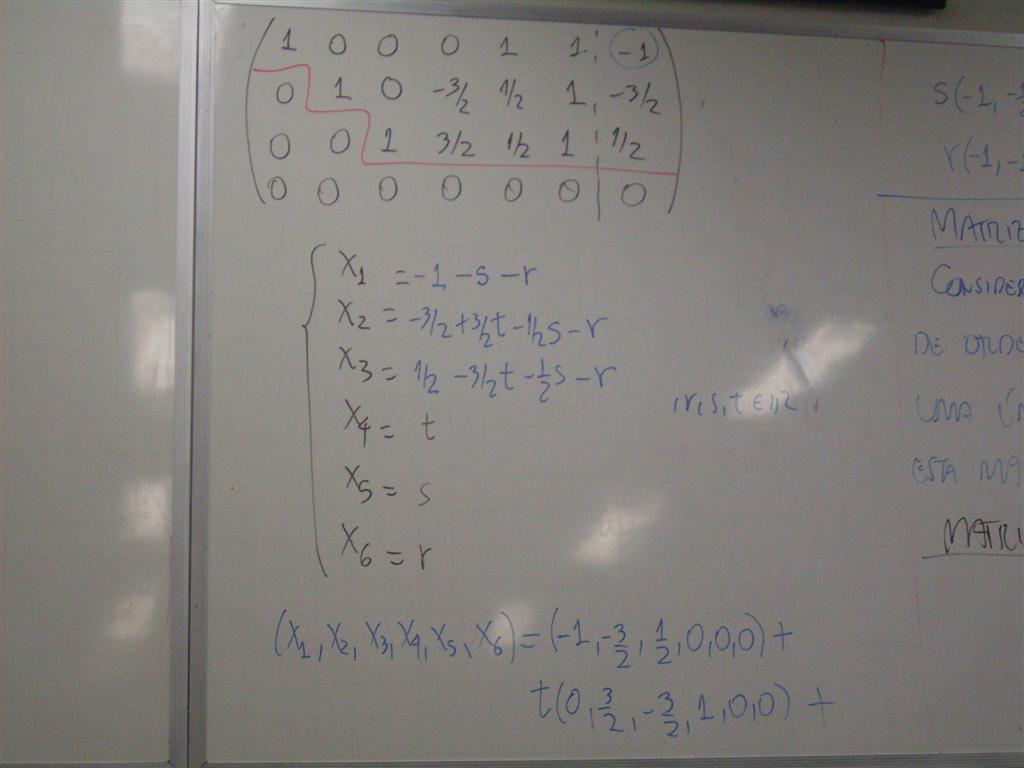 1 0 0 0 1 1 -1
0 1 0 -3/2 1/2 1 -3/2
0 0 1 3/2 1/2 1 1/2
0 0 0 0 0 0 0
x1 = -1 - s - r
x2 = -3/2 + 3/2t - 1/2s - r
x3 = 1/2 - 3/2t - 1/2s - r
x4 = t
x5 = s
x6 = r
, r, s, t ∈ IR
(x1, x2, x3, x4, x5, x6) = (-1, -3/2, 1/2, 0, 0, 0) +
t(0, 3/2, -3/2, 1, 0, 0) +
s(-1, -
r(-1, -
MATRIZ
CONSIDER
DE ORDE
UMA ÚN
ESTA MA
MATRI